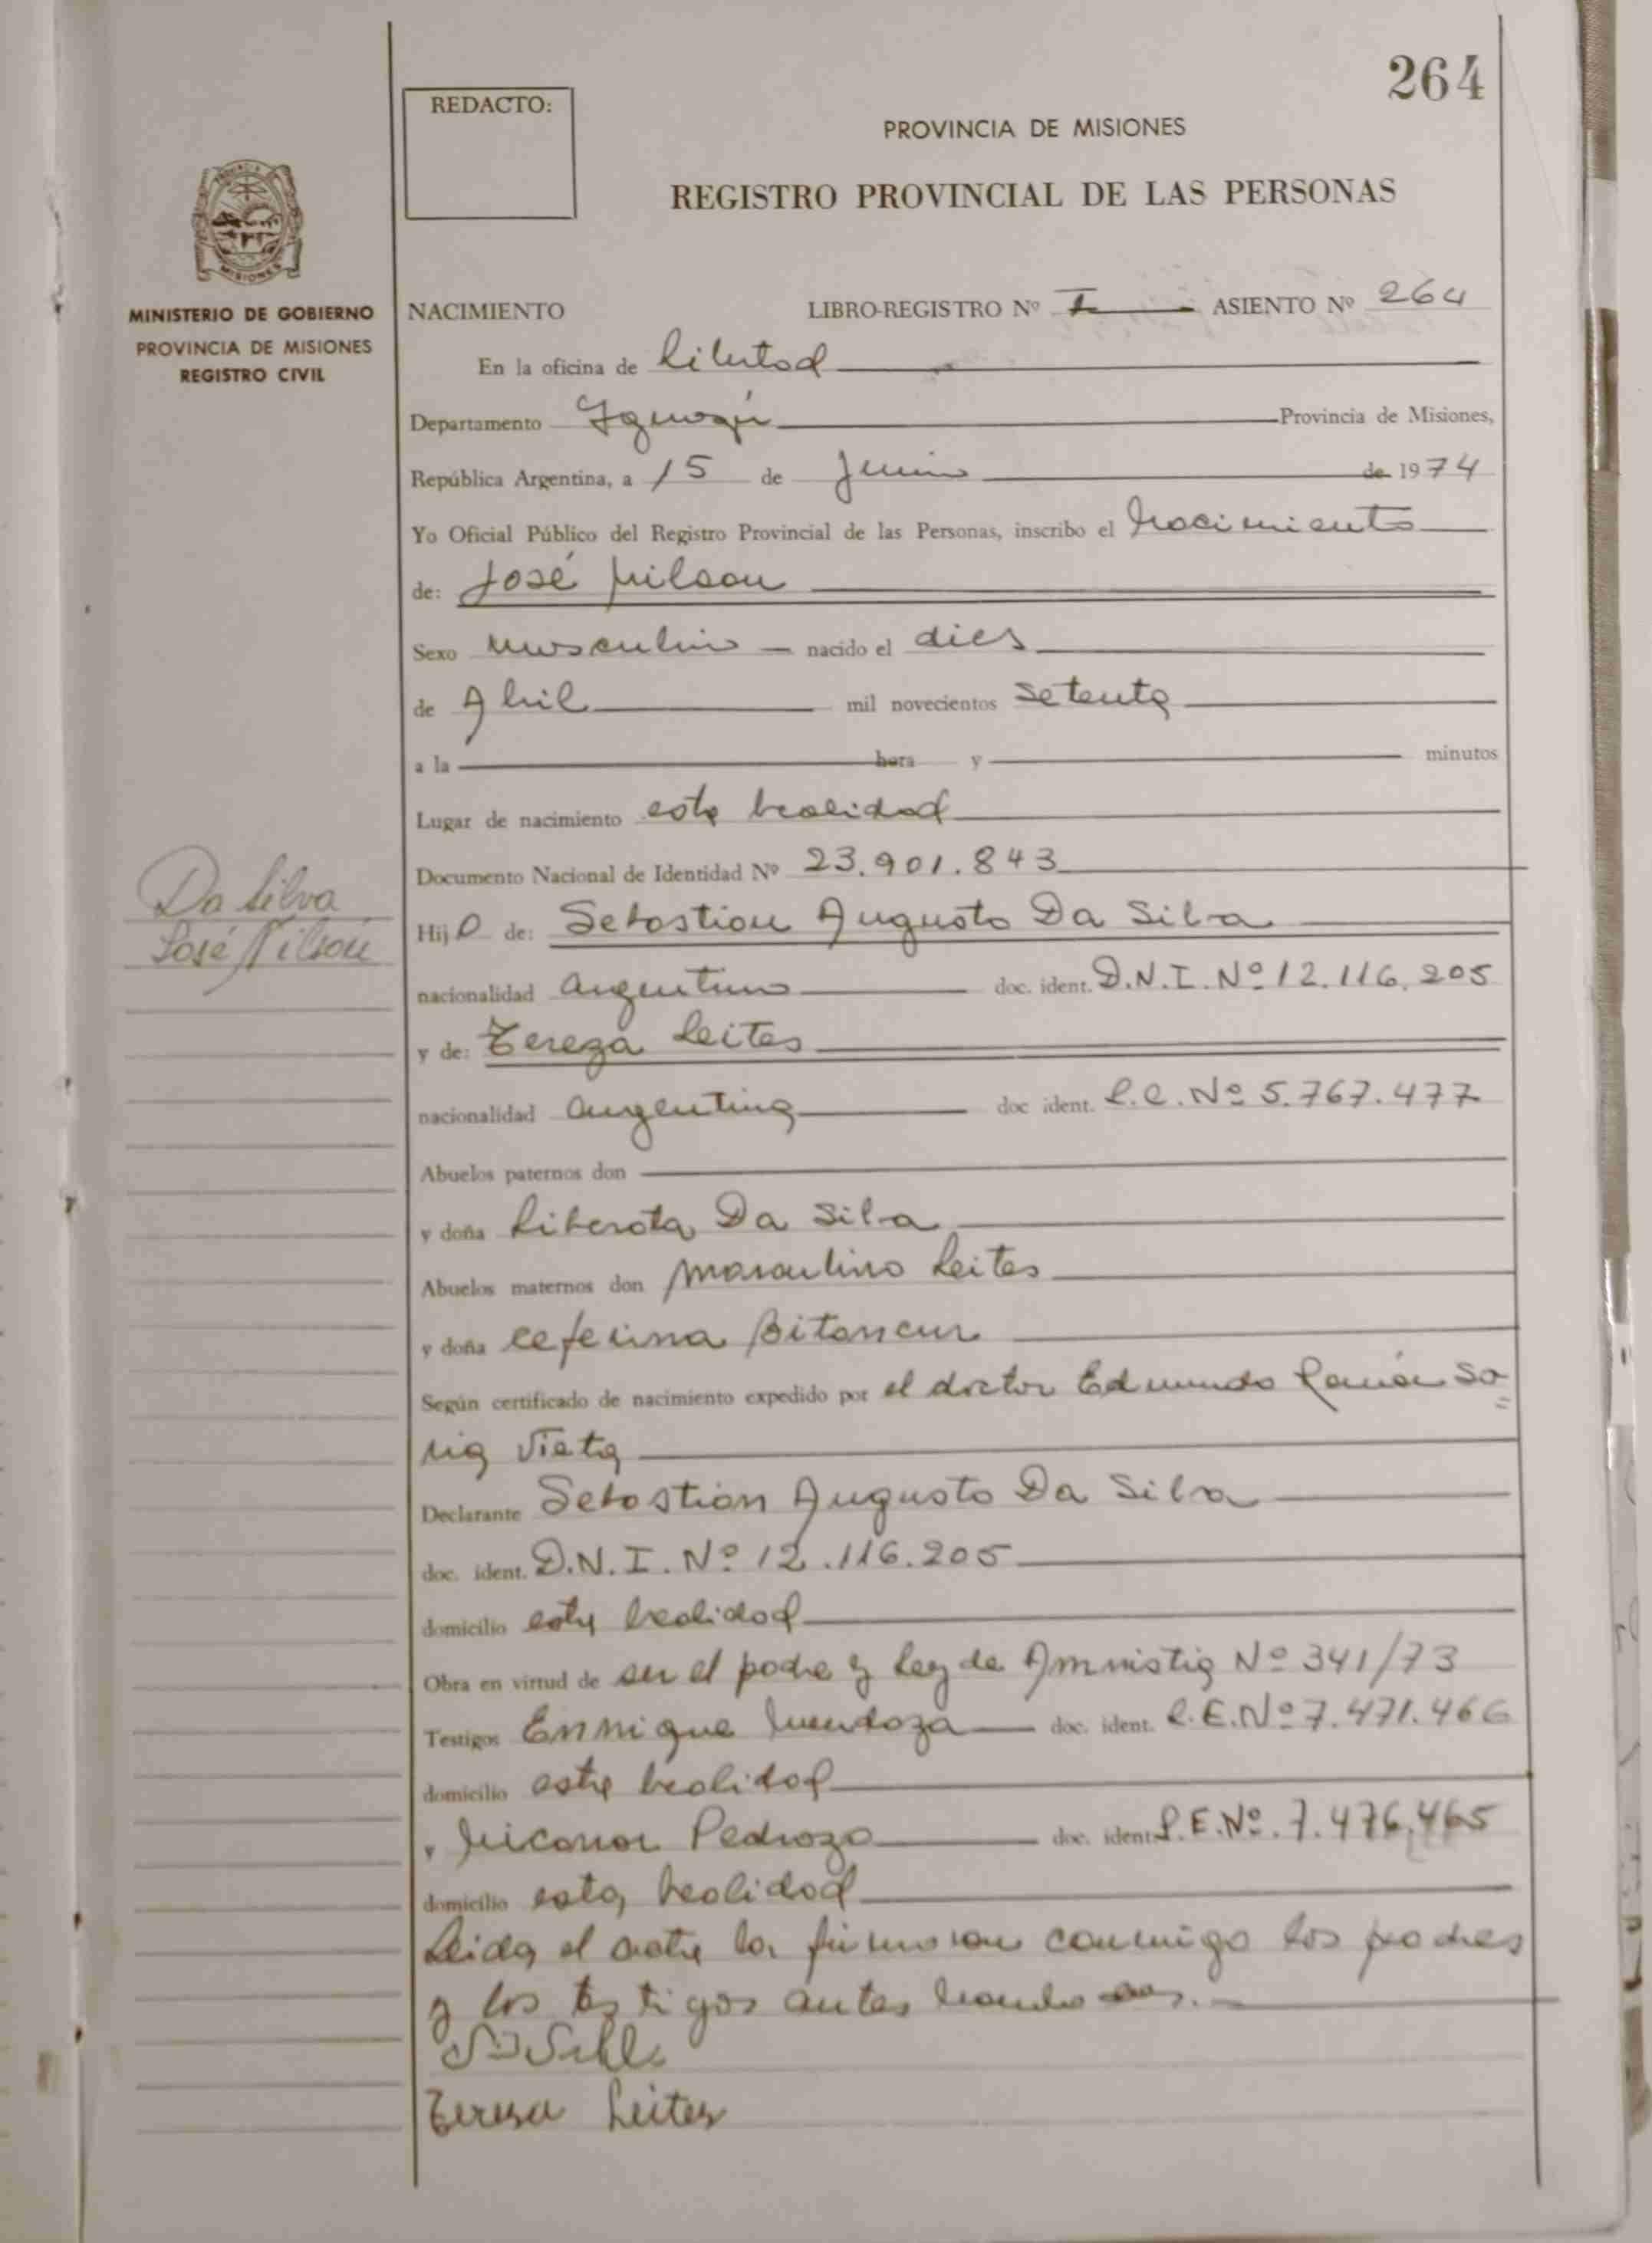 264
REDACTO:
PROVINCIA DE MISIONES
REGISTRO PROVINCIAL DE LAS PERSONAS
MISIONES
MINISTERIO DE GOBIERNO
PROVINCIA DE MISIONES
REGISTRO CIVIL
NACIMIENTO LIBRO-REGISTRO Nº I ASIENTO Nº 264
En la oficina de Libertad
Departamento Iguazú Provincia de Misiones,
República Argentina, a 15 de Junio de 1974
Yo Oficial Público del Registro Provincial de las Personas, inscribo el Nacimiento
de: José Nilson
Sexo masculino nacido el dies
de Abril mil novecientos setenta
a la hora y minutos
Lugar de nacimiento esta localidad
Documento Nacional de Identidad Nº 23.901.843
Da Silva
José Nilson
Hijo de: Sebastian Augusto Da Silva
nacionalidad argentino doc. ident. D.N.I. Nº 12.116.205
y de: Tereza Leites
nacionalidad argentina doc ident. L.C. Nº 5.767.477
Abuelos paternos don
y doña Liberata Da Silva
Abuelos maternos don Marculino Leites
y doña Ceferina Bitancur
Según certificado de nacimiento expedido por el doctor Edmundo Ramón So=
ria Vieta
Declarante Sebastián Augusto Da Silva
doc. ident. D.N.I. Nº 12.116.205
domicilio esta localidad
Obra en virtud de ser el padre y Ley de Amnistia Nº 341/73
Testigos Enrrique Mendoza doc. ident. L.E. Nº 7.471.466
domicilio esta localidad
y Nicanor Pedrozo doc. ident. L.E. Nº. 7.476.465
domicilio esta localidad
Leida el acta la firmaron conmigo los padres
y los testigos antes
Teresa Leites